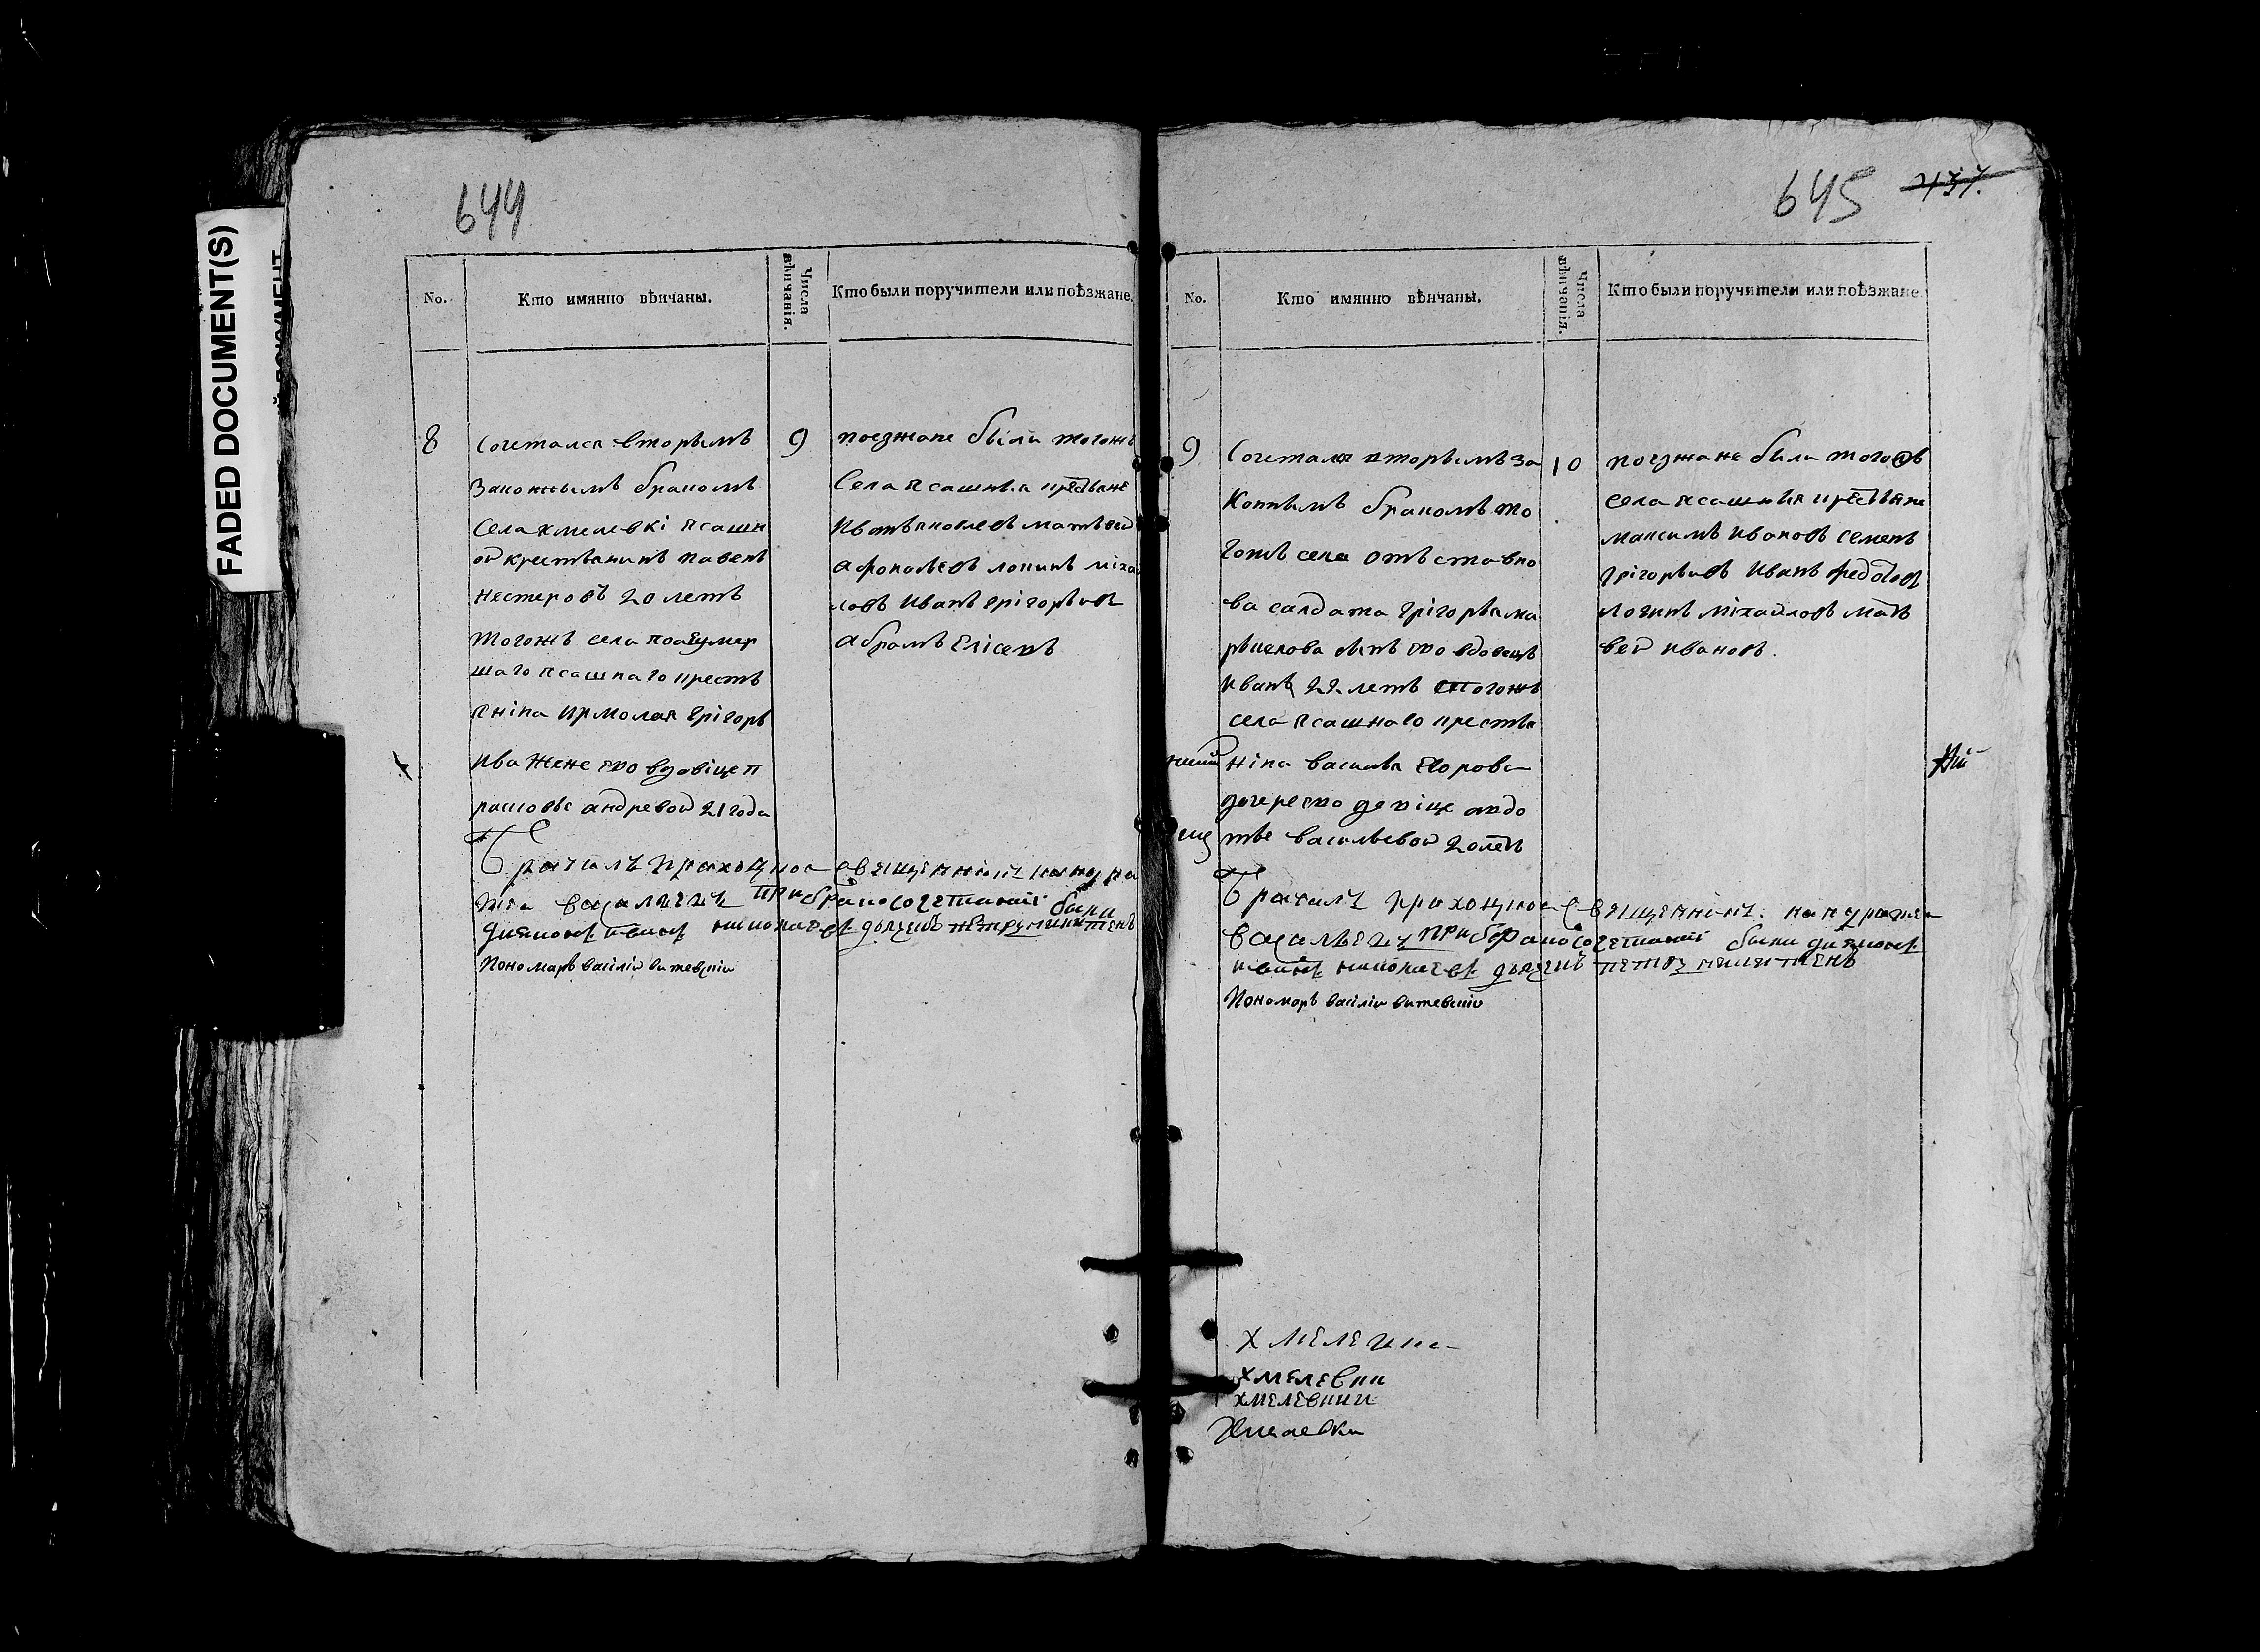 FADED DOCUMENT(S)
644
No.
Кто имянно вѣнчаны.
Числа вѣнчанія.
Кто были поручители или поѣзжане.
8
Сочетался вторымъ
законнымъ бракомъ
Села хмелевкі ясашн
ой крестьянинъ павелъ
нестеровъ 20 летъ
тогожъ села поумер
шаго ясашнаго кресть
яніна ярмолая грігорь
ива жене ево вдовіце п
расковье андревой 21 года
9
поезжане были тогожъ
Села ясашныя крестьяне
афонасьевъ логинъ міха
ловъ Иванъ грігорьивъ
абрамъ Елісевъ
Бračилъ приходцкой священникъ
василиевъ при бракосочетаніи были
николаевъ дьячекъ
Пономарь васілій витевскій
645
437.
No.
Кто имянно вѣнчаны.
Числа вѣнчанія.
Кто были поручители или поѣзжане.
9
Сочетался вторымъ за
коннымъ бракомъ то
гожъ села отъставно
ва салдата грігорья ма
ркелова сынъ ево вдовецъ
Иванъ 22 летъ тогожъ
села ясашнаго крестья
ніна василья Егорова
дочере ево девіце авдо
тье васильевой 20 летъ
10
поезжане были тогожъ
села ясашныя крестьяне
максимъ ивановъ семенъ
грігорьивъ Иванъ федотовъ
логинъ міхайловъ мат
вей ивановъ.
приходцкой священникъ
василиевъ при бракосочетаніи были
николаевъ дьячекъ
Пономарь васілій витевскій
хмелевки
хмелевки
хмелевкии
Хмелевки